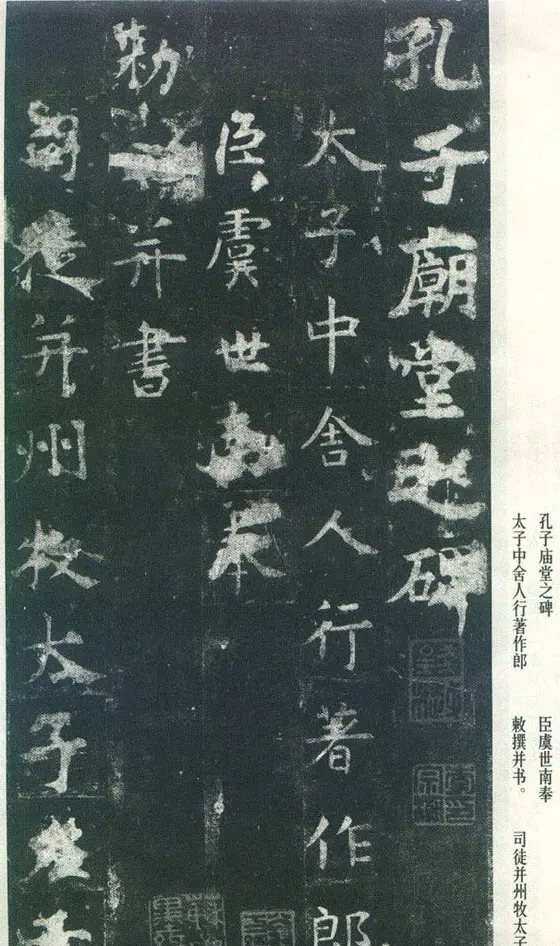 孔子廟堂之碑
太子中舍人行著作郎
臣虞世南奉
勅撰并書
司徒并州牧太子左
孔子庙堂之碑　臣虞世南奉
太子中舍人行著作郎　敕撰并书。　司徒并州牧太子